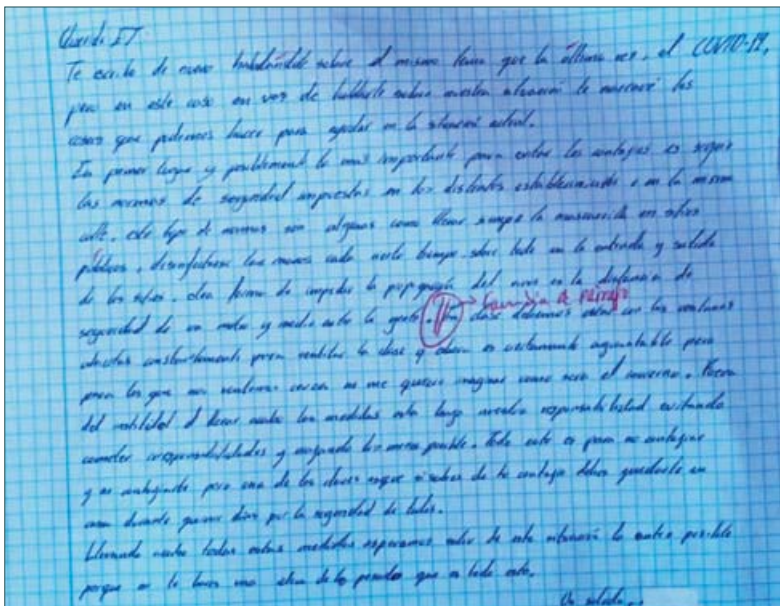 Querido E.T.
Te escribo de nuevo hablándote sobre el mismo tema que la última vez, el COVID-19,
pero en este caso en vez de hablarte sobre nuestra situación te narraré las
cosas que podemos hacer para ayudar en la situación actual.
En primer lugar y posiblemente lo mas importante para evitar los contagios es seguir
las normas de seguridad impuestas en los distintos establecimientos o en la misma
calle, este tipo de normas son algunas como llevar siempre la mascarilla en sitios
públicos, desinfectarse las manos cada cierto tiempo sobre todo en la entrada y salida
de los sitios. Otra forma de impedir la propagación del virus es la distancia de
seguridad de un metro y medio entre la gente. En clase debemos estar con las ventanas
abiertas constantemente para ventilar la clase y ahora es aguantable pero
para los que nos sentamos cerca no me quiero imaginar como sera el invierno. Fuera
del instituto el llevar acabo las medidas esta bajo nuestra responsabilidad evitando
cometer irresponsabilidades y lo menos posible. Todo esto es para no contagiar
y no contagiarte pero una de las claves es que si sabes de tu contagio debes quedarte en
casa durante quince días por la seguridad de todos.
Llevando acabo todas estas medidas esperamos salir de esta situación lo antes posible
porque no te haces una idea de lo pesado que es todo esto.
Un saludo.